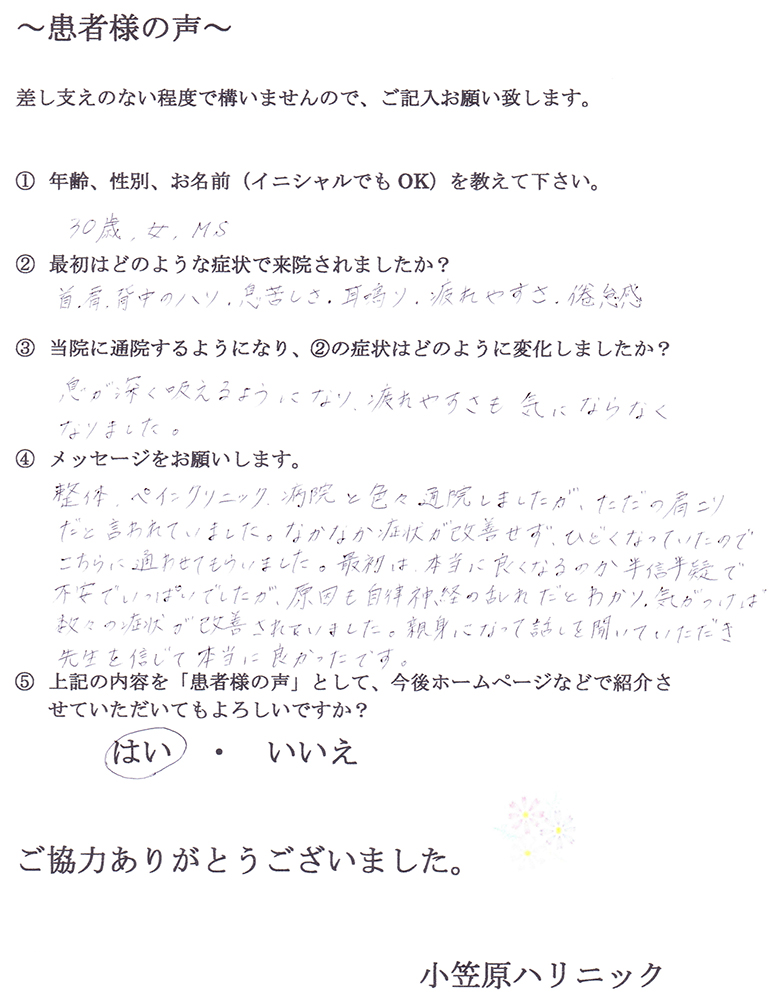 ～患者様の声～
差し支えのない程度で構いませんので、ご記入お願い致します。
① 年齢、性別、お名前（イニシャルでも OK）を教えて下さい。
30歳, 女, MS
② 最初はどのような症状で来院されましたか？
首.肩.背中のハリ.息苦しさ.耳鳴り.疲れやすさ.倦怠感
③ 当院に通院するようになり、②の症状はどのように変化しましたか？
息が深く吸えるようになり、疲れやすさも気にならなく
なりました。
④ メッセージをお願いします。
整体、ペインクリニック、病院と色々通院しましたが、ただの肩こり
だと言われていました。なかなか症状が改善せず、ひどくなっていたので
こちらに通わせてもらいました。最初は、本当に良くなるのか半信半疑で
不安でいっぱいでしたが、原因も自律神経の乱れだとわかり、気がつけば
数々の症状が改善されていました。親身になって話しを聞いていただき
先生を信じて本当に良かったです。
⑤ 上記の内容を「患者様の声」として、今後ホームページなどで紹介さ
せていただいてもよろしいですか？
はい ・ いいえ
ご協力ありがとうございました。
小笠原ハリニック